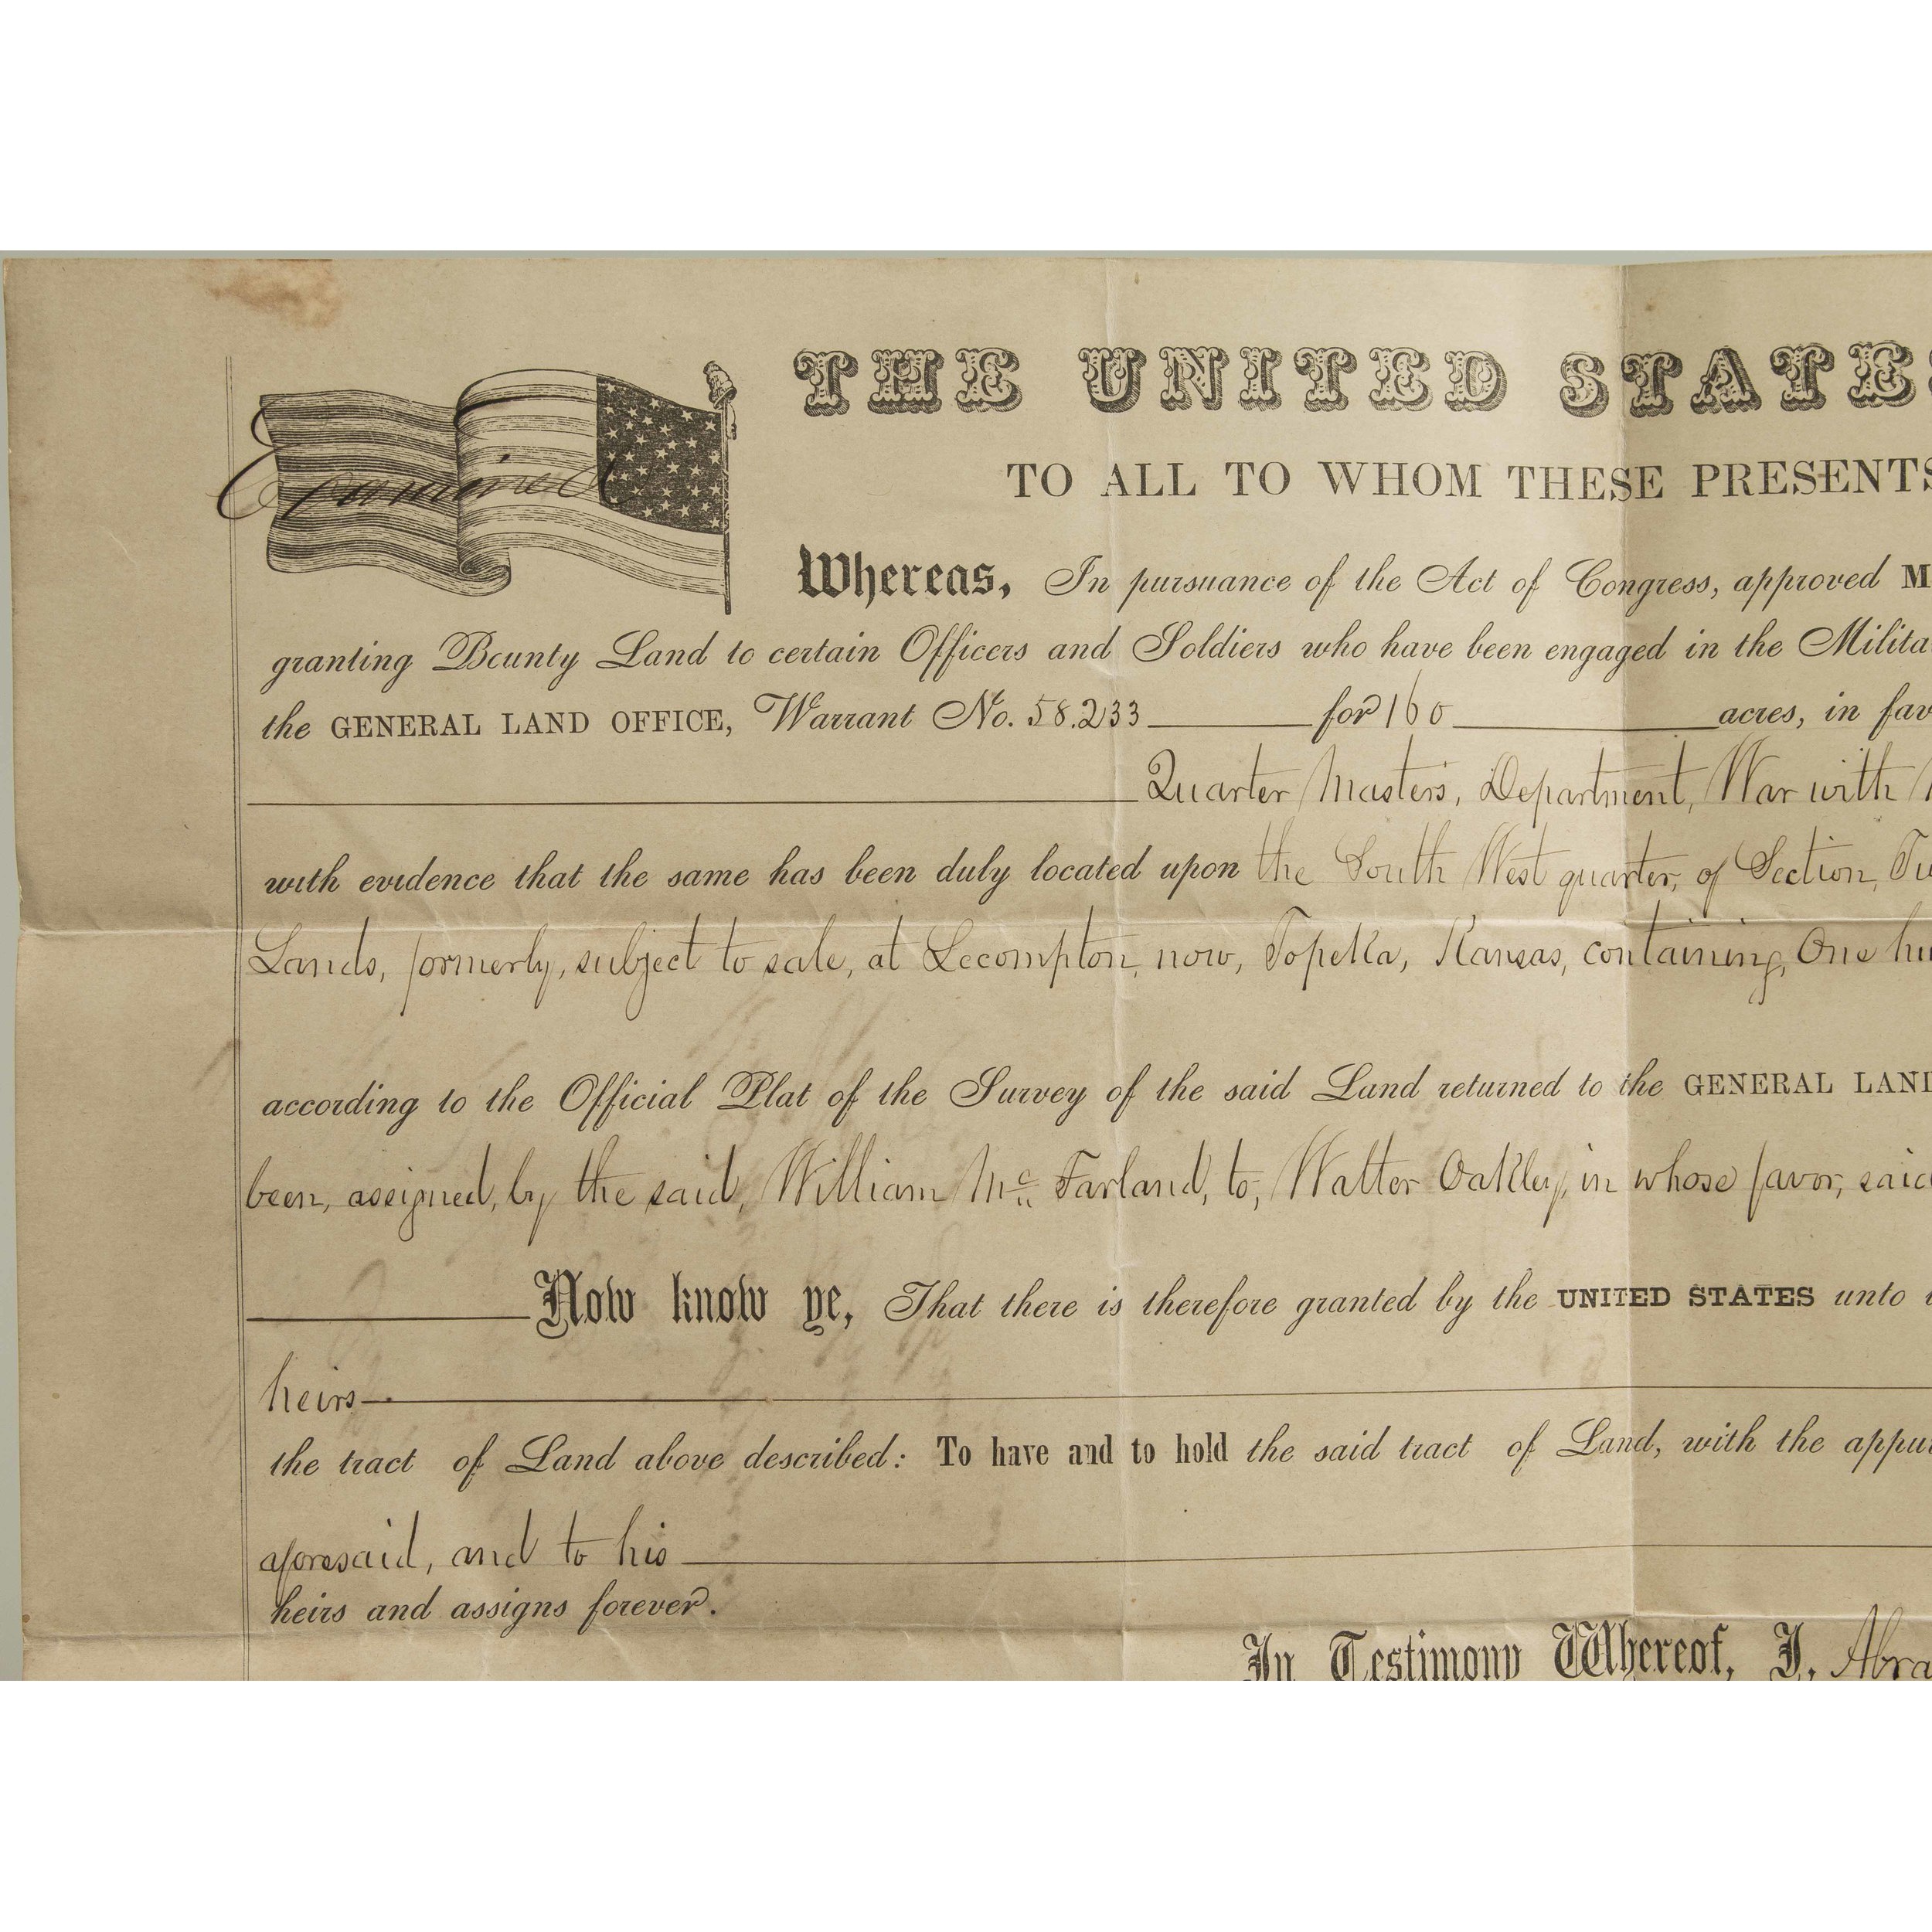 THE UNITED STATES
TO ALL TO WHOM THESE PRESENTS
Examined
Whereas, In pursuance of the Act of Congress, approved M
granting Bounty Land to certain Officers and Soldiers who have been engaged in the Milita
the GENERAL LAND OFFICE, Warrant No. 58.233 for 160 acres, in fav
Quarter Masters, Department, War with
with evidence that the same has been duly located upon the South West quarter, of Section,
Lands, formerly, subject to sale, at Lecompton, now, Topeka, Kansas, containing, One hu
according to the Official Plat of the Survey of the said Land returned to the GENERAL LAND
been, assigned, by the said, William Mc Farland, to, Walter Oakley, in whose favor, said
Now know ye, That there is therefore granted by the UNITED STATES unto
heirs
the tract of Land above described: To have and to hold the said tract of Land, with the appu
aforesaid, and to his
heirs and assigns forever.
In Testimony Whereof, I, Abra